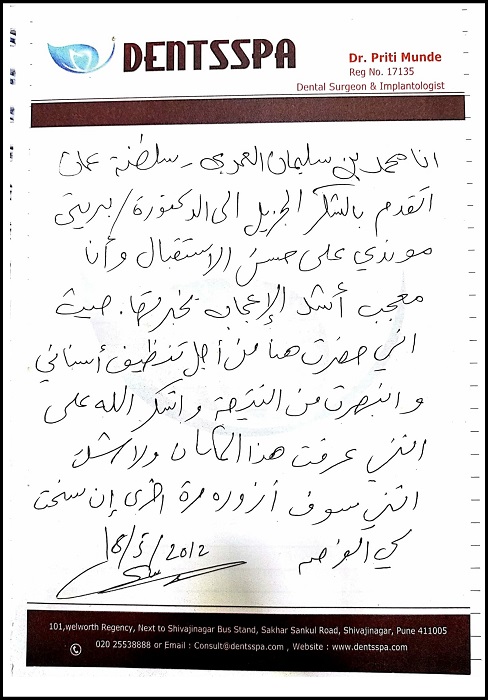 DENTSSPA
Dr. Priti Munde
Reg No. 17135
Dental Surgeon & Implantologist
انا محمد بن سليمان العمري - سلطنة عمان
اتقدم بالشكر الجزيل الى الدكتورة / بريتي
موندي على حسن الاستقبال وأنا
معجب أشد الإعجاب بخبرتها. حيث
اني حضرت هنا من أجل تنظيف أسناني
و انبهرت من النتيجة و اشكر الله على
انني عرفت هذا المكان ولا شك
انني سوف أزوره مرة اخرى إن سنحت
لي الفرصه
18/5/2012
101,welworth Regency, Next to Shivajinagar Bus Stand, Sakhar Sankul Road, Shivajinagar, Pune 411005
020 25538888 or Email : Consult@dentsspa.com , Website : www.dentsspa.com